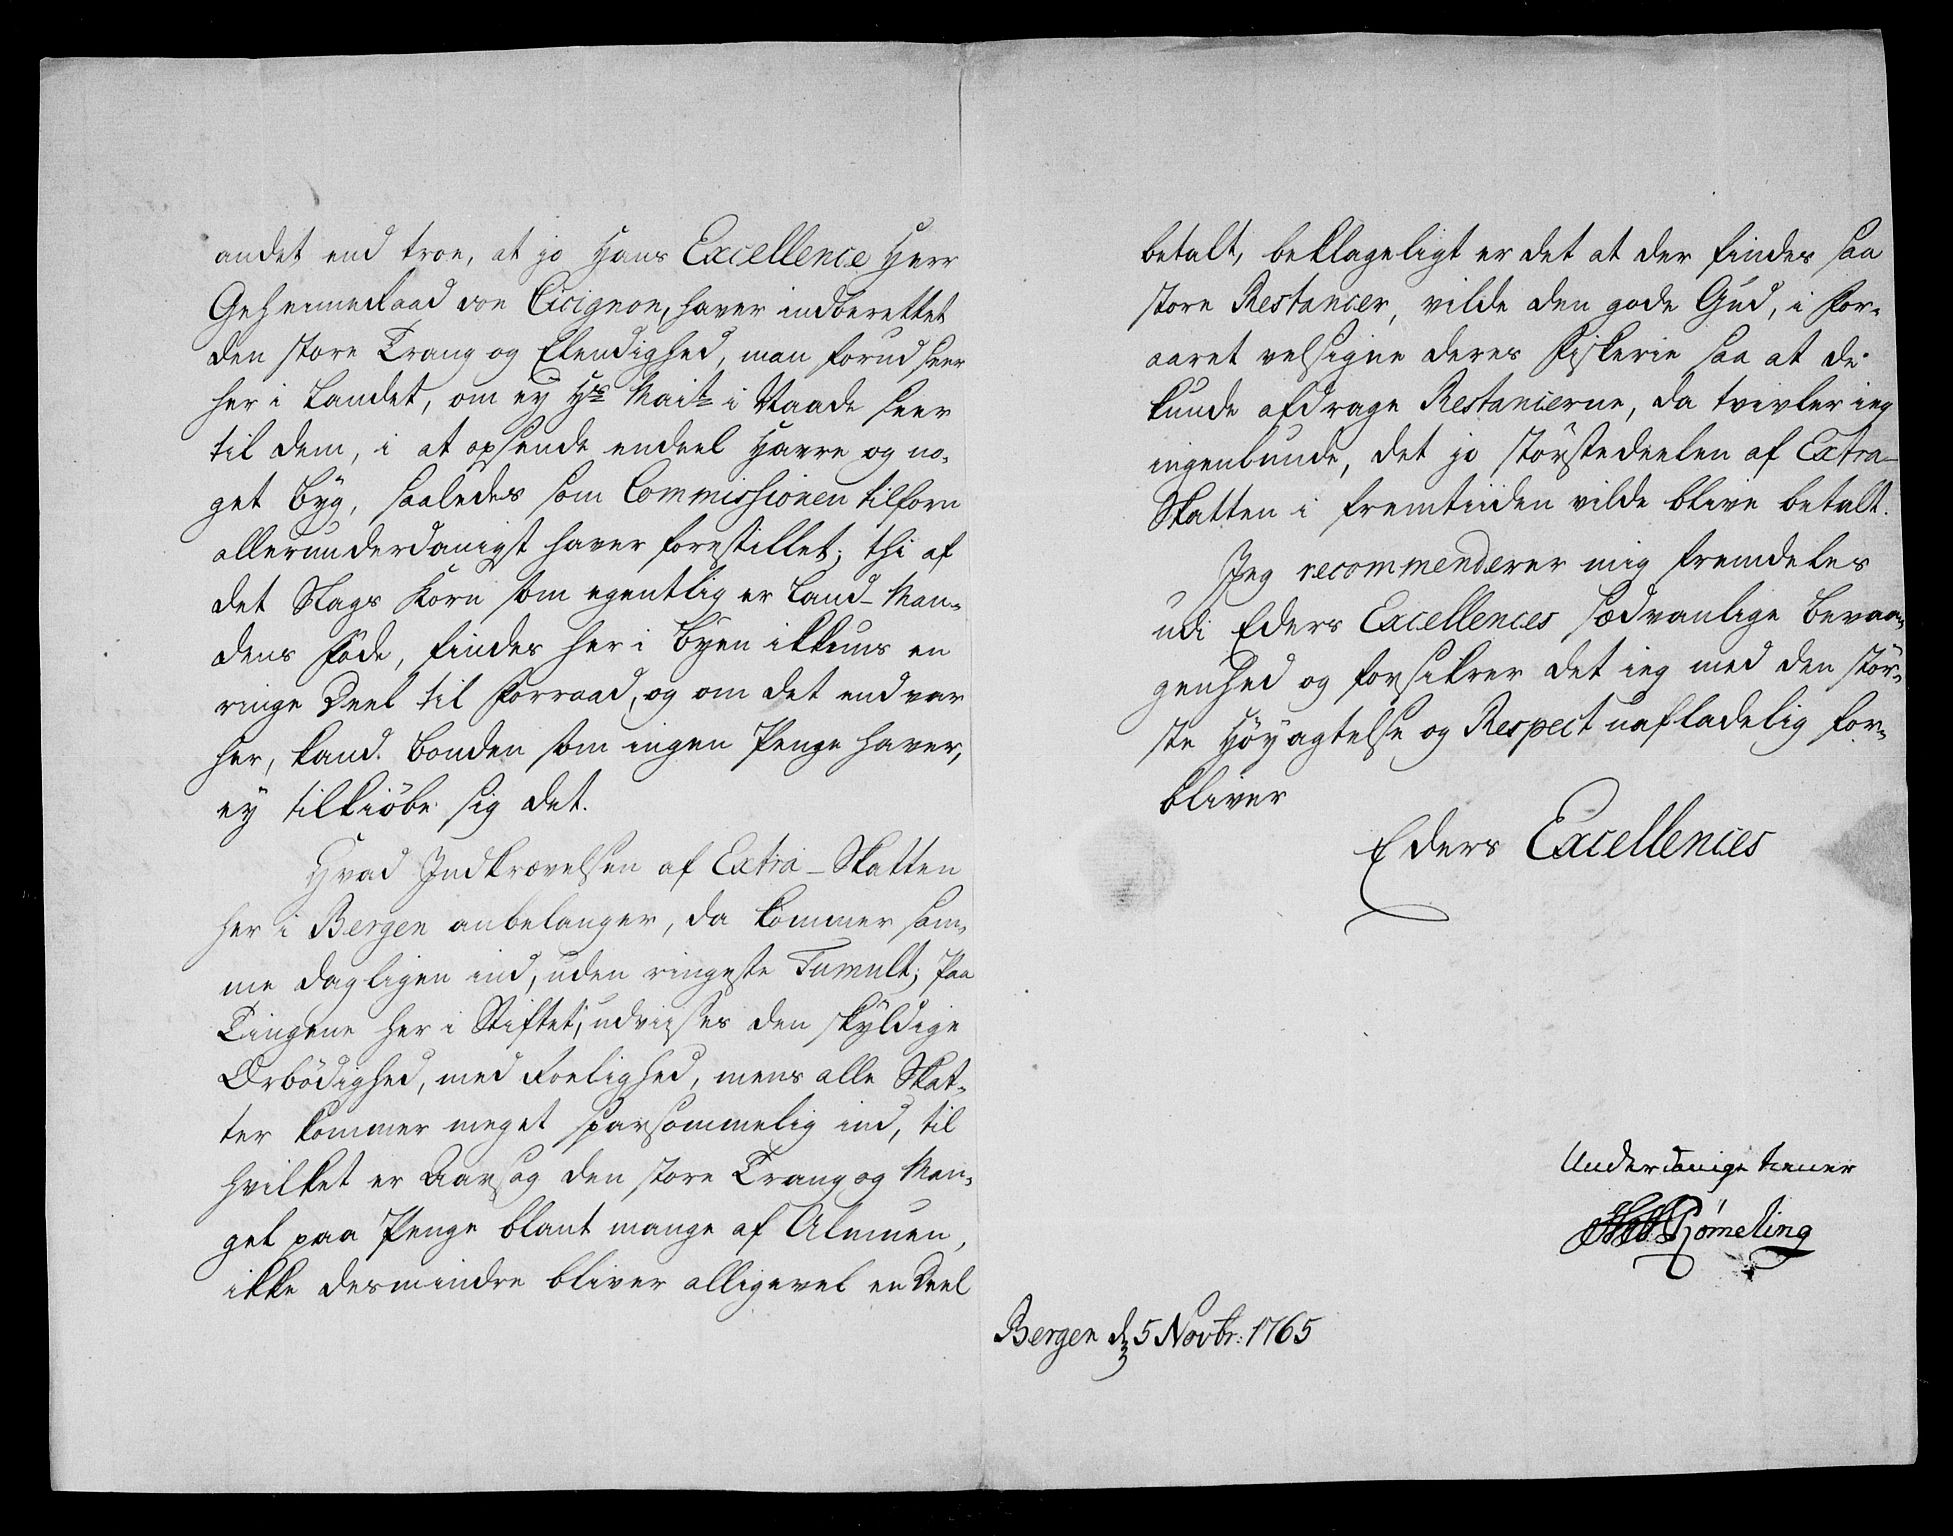 andet end troe, at jo Hans Excellence Herr
Geheimeraad von Cicignon, haver indberettet
den store Trang og Elendighed, man forud seer
her i Landet, om ey Hs Maits i Naade seer
til dem, i at opsende endeel Havre og no-
get Byg, saaledes som Commissionen tilforn
allerunderdanigst haver forestillet; thi af
det Slags Korn som egentlig er Land-Man-
dens Føde, findes her i Byen ikkuns en
ringe Deel til Forraad, og om det end var
her, kand Bonden som ingen Penge haver,
ey tilkiøbe sig det.
Hvad Indkrævelsen af Extra-Skatten
her i Bergen anbelanger, da kommer sam-
me dagligen ind, uden ringeste Tumult; Paa
Tingene her i Stiftet, udviises den skyldige
Ærbödighed, med Roelighed, mens alle Skat-
ter kommer meget sparsommelig ind, til
hvilket er Aarsag den store Trang og Man-
gel paa Penge blant mange af Almuen,
ikke desmindre bliver alligevel en Deel
betalt, beklageligt er det at der findes saa
store Restancer, vilde den gode Gud, i For-
aaret velsigne deres Fiskerie saa at de
kunde afdrage Restancerne, da tvivler ieg
ingenlunde, det jo störstedeelen af Extra-
Skatten i fremtiiden vilde blive betalt.
Jeg recommenderer mig fremdeles
udi Eders Excellences sædvanlige Bevaa-
genhed og forsikrer det ieg med den stör-
ste Höyagtelse og Respect uafladelig for-
bliver
Eders Excellences
Underdanige tiener
Römeling
Bergen d 5 Novbr: 1765